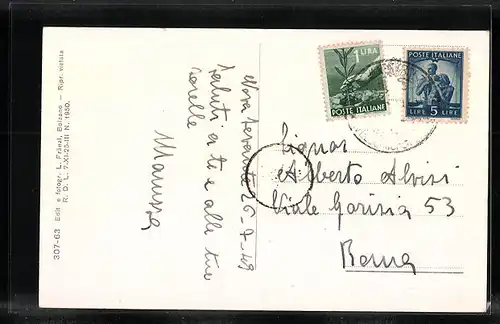 307-63 Edit e fotogr. L. Fränzl, Bolzano - Ripr. vietata
R. D. L. 7.XI-25-III N. 1950.
Nova Levante 26-7-49
Saluti a te e alle tue
sorelle
Marussa
1 LIRA
POSTE ITALIANE
POSTE ITALIANE
LIRE 5 LIRE
Signor
Alberto Alvisi
Viale Gorizia 53
Roma